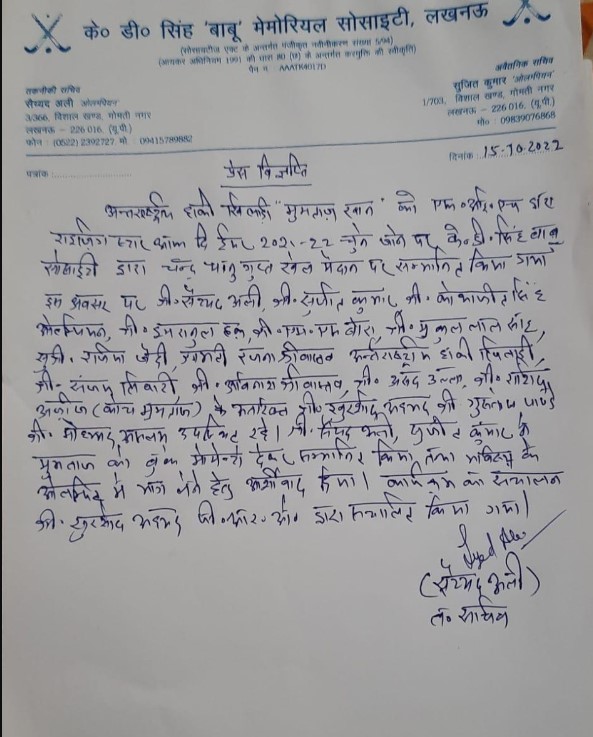 के० डी० सिंह 'बाबू' मेमोरियल सोसाइटी, लखनऊ
(सोसायटीज एक्ट के अन्तर्गत पंजीकृत नवीनीकरण संख्या
(आयकर अधिनियम 1961 की धारा 80 (जी) के अन्तर्गत करमुक्ति की स्वीकृति)
पैन नं : AAATK4017D
तकनीकी सचिव
सैय्यद अली 'ओलम्पियन'
3/366, विशाल खण्ड, गोमती नगर
लखनऊ – 226 016, (यू.पी.)
फोन : (0522) 2392727, मो. 09415789882
अवैतनिक सचिव
सुजित कुमार 'ओलम्पियन'
1/703, विशाल खण्ड, गोमती नगर
लखनऊ – 226 016, (यू.पी.)
मो० : 09839076868
पत्रांक
दिनांक 15.10.2022
प्रेस विज्ञप्ति
अन्तर्राष्ट्रीय हाकी खिलाड़ी "मुमताज खान" को एफ.आई.एच द्वारा
राइजिंग स्टार आफ दि ईयर 2021-22 चुने जाने पर के.डी. सिंह बाबू
सोसाइटी द्वारा चन्द्र भानु गुप्त खेल मैदान पर सम्मानित किया गया
इस अवसर पर श्री. सैय्यद अली, श्री. सुजीत कुमार श्री.
ओलम्पियन, श्री. इमरानुल हक, श्री. एस. एम बोरा, श्री. मुकुल लाल शाह,
सुश्री. रजिया जैदी, श्रीमती रंजना श्रीवास्तव अन्तर्राष्ट्रीय हाकी खिलाड़ी,
श्री. संजय तिवारी श्री. अविनाश श्रीवास्तव, श्री. उल्ला, श्री. राशिद
अजीज (कोच मुमताज) के अतिरिक्त श्री. खुर्शीद अहमद श्री पाण्डे
श्री. मोहम्मद असलम उपस्थित रहे। श्री. सैय्यद अली, सुजीत कुमार ने
मुमताज को बुके मोमेन्टो देकर सम्मानित किया, तथा भविष्य के
ओलम्पिक में भाग लेने हेतु आर्शीवाद दिया। कार्यक्रम का संचालन
श्री. खुर्शीद अहमद पी.आर.ओ. द्वारा संचालित किया गया।
(सैय्यद अली)
त० सचिव